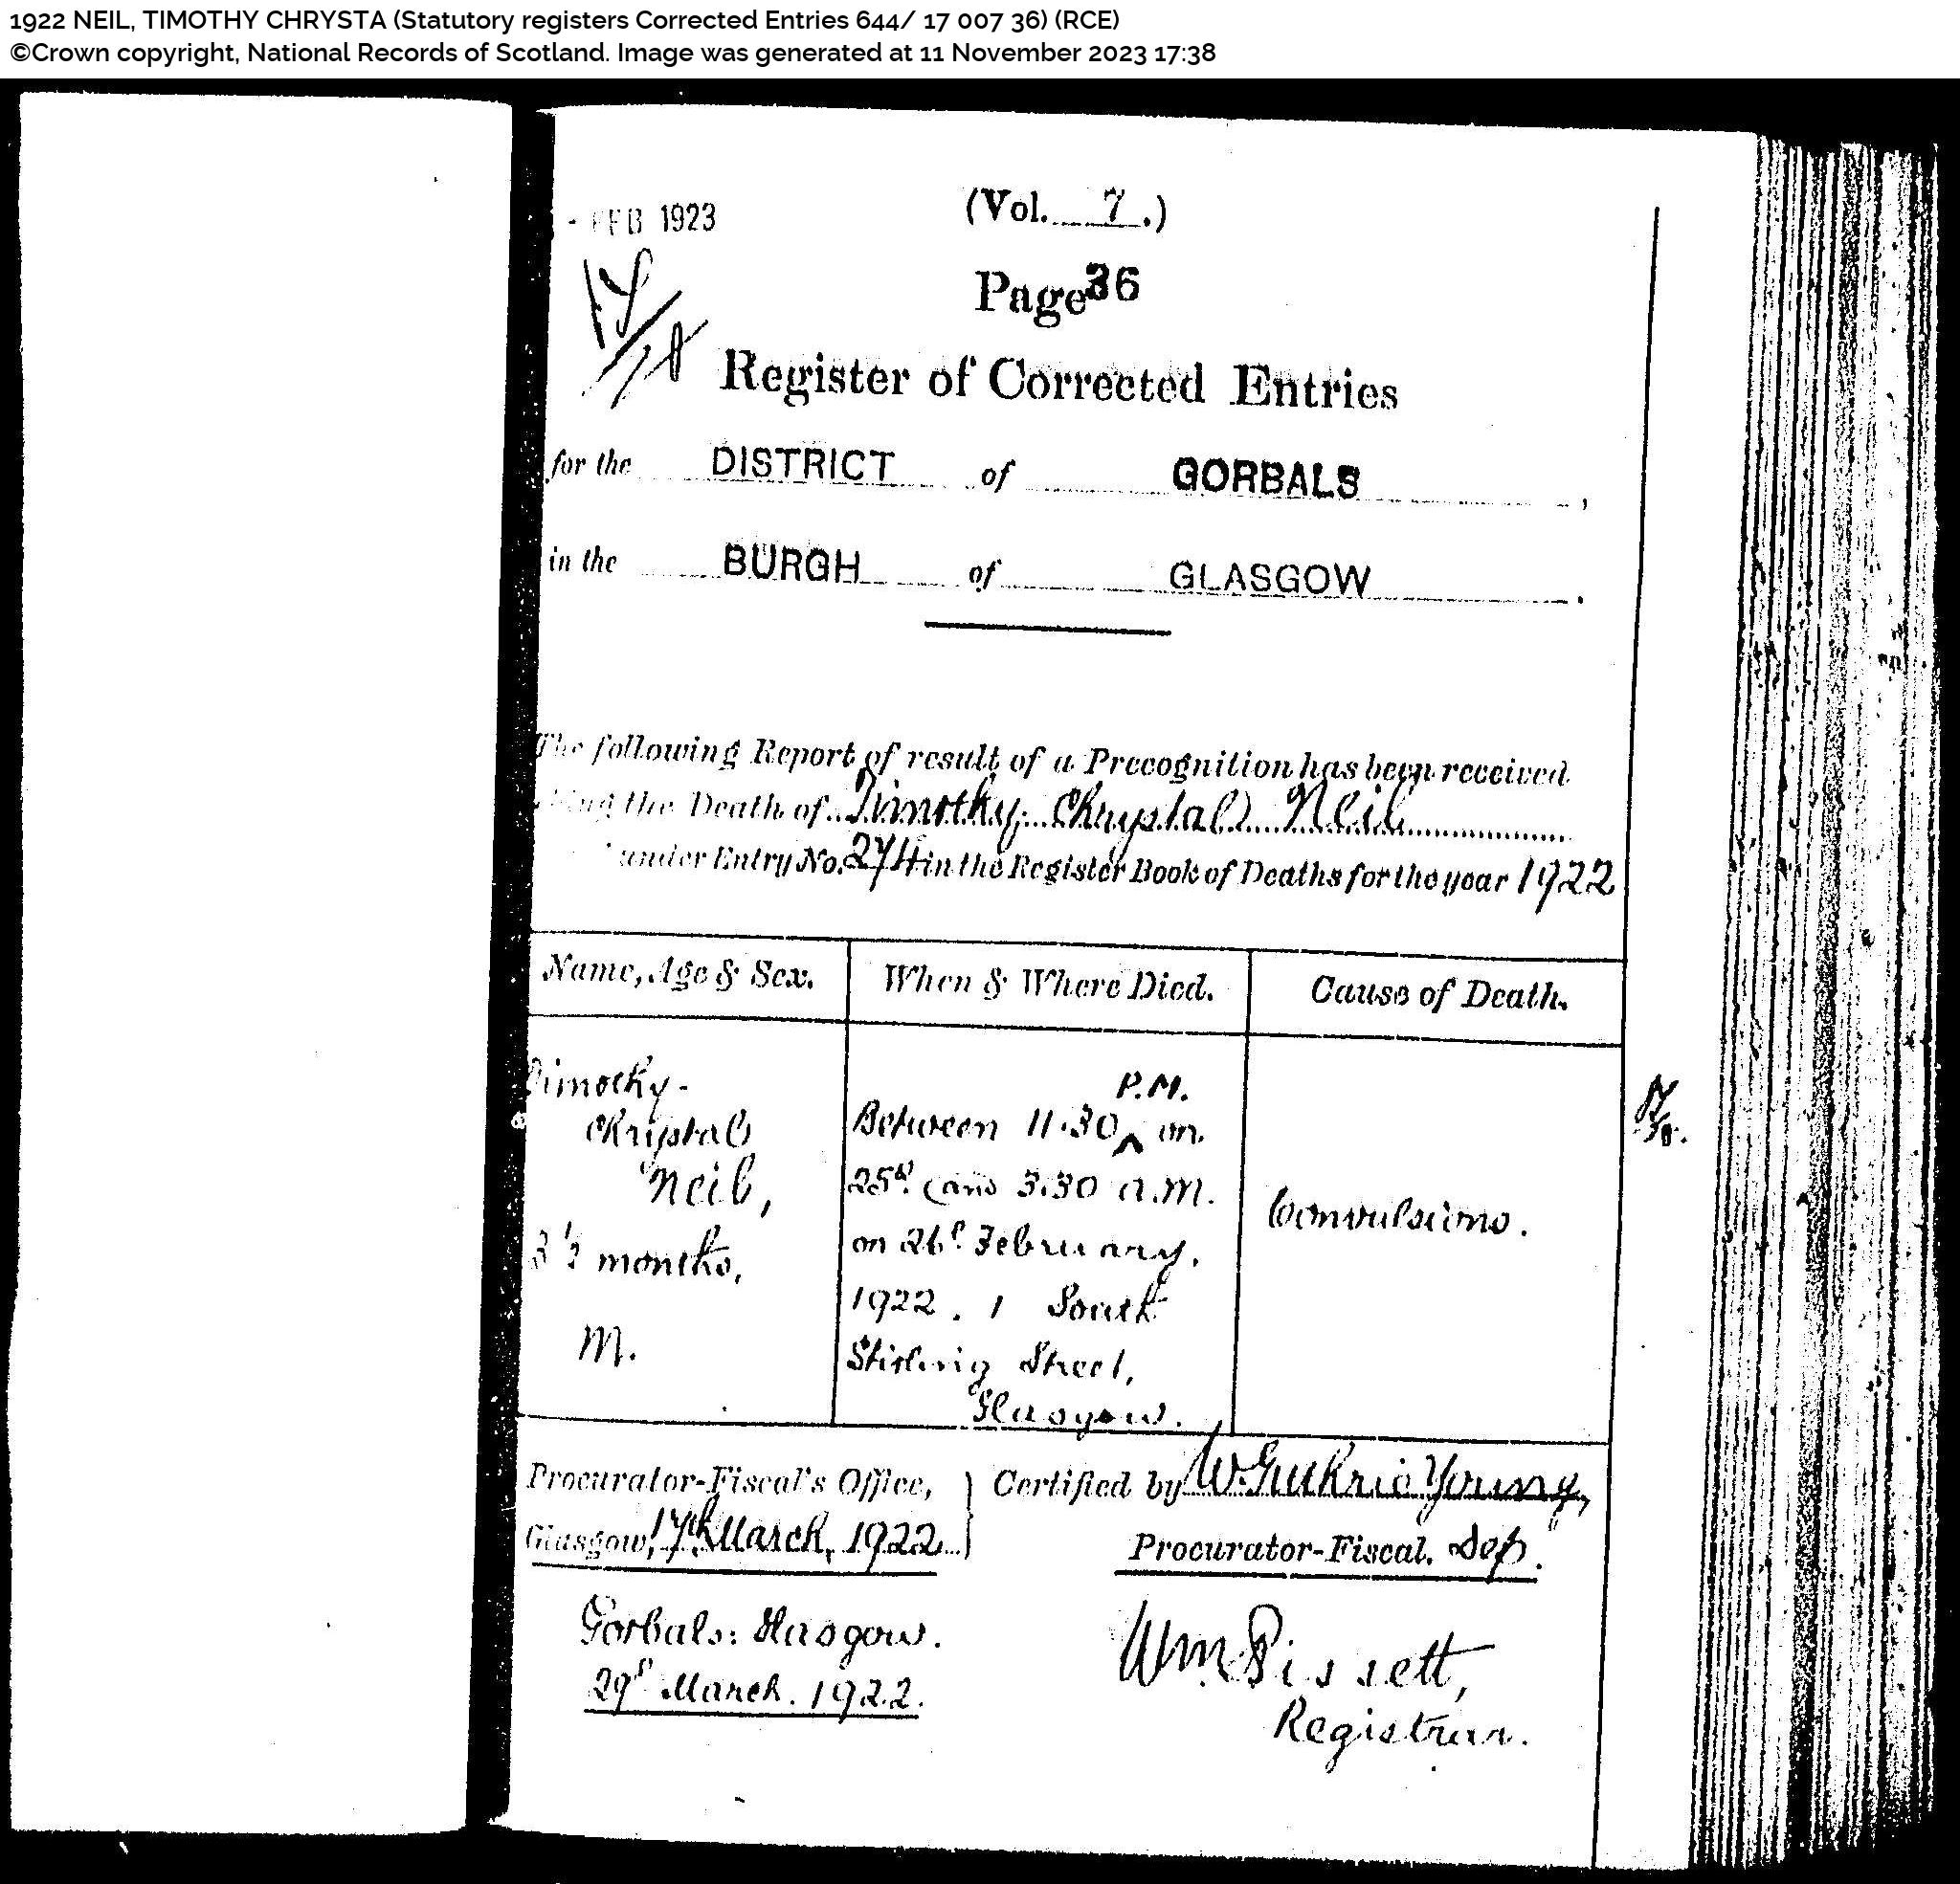 1922 NEIL, TIMOTHY CHRYSTA (Statutory registers Corrected Entries 644/ 17 007 36) (RCE)
©Crown copyright, National Records of Scotland. Image was generated at 11 November 2023 17:38
- FEB 1923
(Vol. 7.)
Page 36
Register of Corrected Entries
for the DISTRICT of GORBALS,
in the BURGH of GLASGOW.
The following Report of result of a Precognition has been received
the Death of Timothy Chrystal Neil
under Entry No. 274 in the Register Book of Deaths for the year 1922
Name, Age & Sex.
When & Where Died.
Cause of Death.
Timothy-
Chrystal
Neil,
3 ½ months,
M.
P.M.
Between 11.30 ^ on
25th and 3.30 a.m.
on 26th February,
1922. 1 South
Stirling Street,
Glasgow.
Convulsions.
Procurator-Fiscal's Office,
Glasgow, 17th March, 1922
Certified by W. Guthrie Young,
Procurator-Fiscal. Dep.
Gorbals: Glasgow.
29th March. 1922.
Wm Bissett,
Registrar.